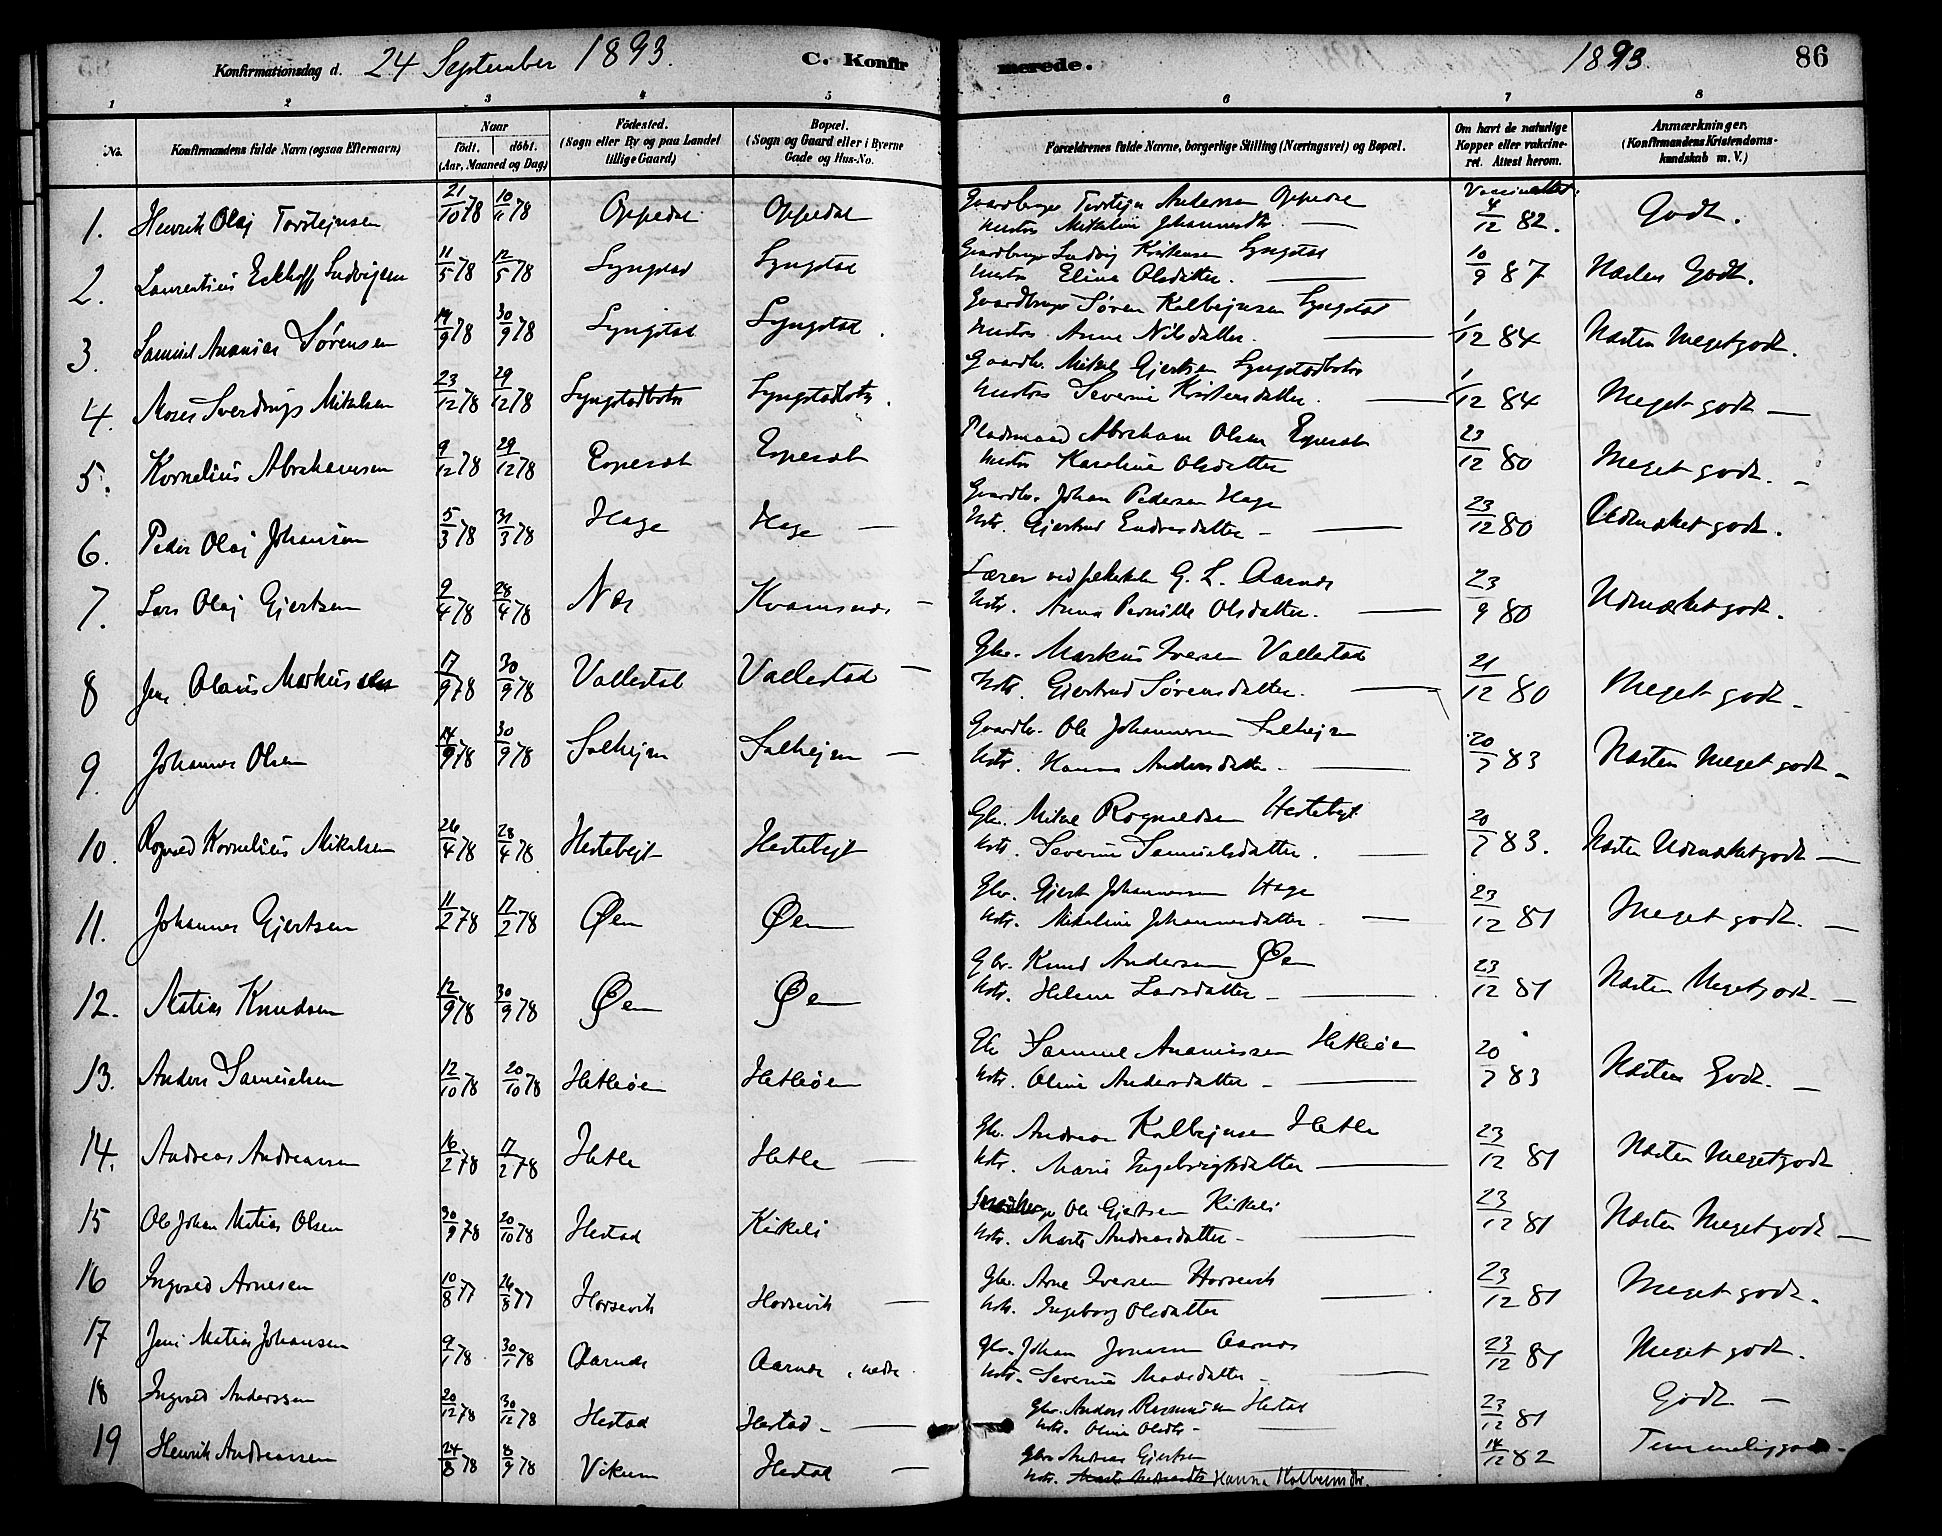 Konfirmationsdag d. 24 September 1893. C. Konfirmerede. 1893 86
1 2 3 4 5 6 7 8
No. Konfirmandens fulde Navn (ogsaa Efternavn) Naar født. døbt. (Aar, Maaned og Dag) Fødested. (Sogn eller By og paa Landet tillige Gaard) Bopæl. (Sogn og Gaard eller i Byerne Gade og Hus-No. Forældrenes fulde Navne, borgerlige Stilling (Næringsvei) og Bopæl. Om havt de naturlige Kopper eller vakcineret. Attest herom. Anmærkninger. (Konfirmandens Kristendomskundskab m. V.)
1. Henrik Olaj Torstejnsen 21/10 78 10/11 78 Oppedal Oppedal Gaardbruger Torstejn Andersen Oppedal
Hustru Mikaline Johannesdtr. — 4/12 82. Godt.
2. Laurentius Eckhoff Ludvigsen 11/5 78 12/5 78 Lyngstad Lyngstad Gaardbruger Ludvig Kristensen Lyngstad
Hustru Eline Olsdatter. — 10/9 87 Næsten Godt.
3. Samuel Ananias Sørensen 14/9 78 30/9 78 Lyngstad Lyngstad. Gaardbruger Søren Kolbejnsen Lyngstad
Hustru Anna Nilsdatter. — 1/12 84 Næsten Megetgodt.
4. Moses Sverdrup Mikalsen 23/12 78 29/12 78 Lyngstadbotn Lyngstadbotn. Gaardbr. Mikal Gjertsen Lyngstadbotn
Hustru Severine Kristensdatter. — 1/12 84 Meget godt —
5. Kornelius Abrahamsen 9/12 78 29/12 78 Espesæt Espesæt Pladsmand Abraham Olsen Espesæt
Hustru Karoline Olsdatter 23/12 80 Meget godt. —
6. Peder Olaj Johansen 5/3 78 31/3 78 Hage Hage — Gaardbr. Johan Pedersen Hage
Hstr. Gjertrud Endresdatter — 23/12 80 Udmærket godt.
7. Lars Olaj Gjertsen 2/4 78 28/4 78 Næs Kvamsnæs — Lærer ved folkeskolen G. L. Aarnæs
Hstr. Anna Pernille Olsdatter. — 23/9 80 Udmærket godt.
8 Jens Olaus Markussen 17/9 78 30/9 78 Vallestad Vallestad — Gbr. Markus Iversen Vallestad
Hstr. Gjertrud Sørensdatter. — 21/12 80 Meget godt —
9. Johannes Olsen 14/9 78 30/9 78 Solhejm Solhejm — Gaardbr. Ole Johannessen Solhejm
Hstr. Hanna Andersdatter. — 20/7 83 Næsten Meget godt —
10. Rognald Kornelius Mikalsen 26/4 78 28/4 78 Hestebejt Hestebejt Gbr. Mikal Rognaldsen Hestebejt
Hstr. Severine Samuelsdatter. — 20/7 83. Næsten Udmærket godt —
11. Johannes Gjertsen 11/2 78 17/2 78 Øen Øen Gbr. Gjert Johannessen Hage
Hstr. Mikaline Johannesdatter. — 23/12 81 Meget godt. —
12. Matias Knudsen 12/9 78 30/9 78 Øen Øen Gbr. Knud Andersen Øen
Hstr. Helene Larsdatter — 23/12 81 Næsten Megetgodt. —
13. Anders Samuelsen 12/10 78 20/10 78 Hetleøen Hetleøen Gbr Samuel Ananiassen Hetleøen
Hstr. Oline Andersdatter — 20/7 83 Næsten Godt. —
14. Andreas Andreassen 16/2 78 17/2 78 Hetle Hetle — Gbr. Andreas Kolbejnsen Hetle
Hstr. Marie Ingebrigtsdatter — 23/12 81 Næsten Megetgodt
15 Ole Johan Matias Olsen 30/9 78 20/10 78 Hestad Kirkeli Ole Gjertsen Kirkeli
Hstr. Marte Andreasdatter — 23/12 81 Næsten Megetgodt —
16 Ingvald Arnesen 10/8 77 26/8 77 Horsevik Horsevik — Gbr. Arne Iversen Horsevik
Hstr. Ingeborg Olsdatter — 23/12 81 Meget godt.
17 Jens Matias Johansen 9/1 78 30/1 78 Aarnæs Aarnæs, nedre Gbr. Johan Jonassen Aarnæs
Hstr. Severine Madsdatter — 23/12 81 Meget godt.
18 Ingvald Anderssen 20/12 78 30/12 78 Hestad Hestad — Gbr. Anders Rasmussen Hestad
Hstr. Oline Olsdtr — 23/12 81 Godt —
19 Henrik Andreassen 24/8 78 8/9 78 Vikum Hestad — Gbr. Andreas Gjertsen
Hstr. Hanna Kolbeinsdtr. 14/12 82 Temmelig godt —